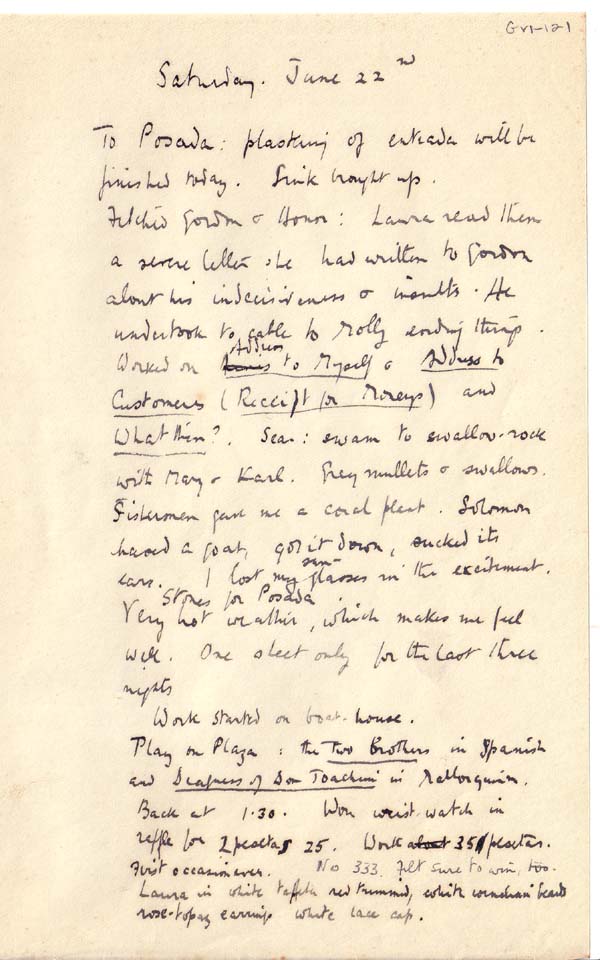 GV1-12-1
Saturday. June 22nd
To Posada: plastering of entrada will be
finished today. Sink brought up.
Fetched Gordon & Honor: Laura read them
a severe letter she had written to Gordon
about his indecisiveness & insults. He
undertook to cable to Molly sending things.
Address
Worked on to Myself & Address to
Customers (Receipt for Moneys) and
What then?. Sea: swam to swallow-rock
with Mary & Karl. Grey mullets & swallows.
Fishermen gave me a coral plant. Solomon
chased a goat, got it down, sucked its
sun-
ears. I lost my glasses in the excitement.
Stones for Posada.
Very hot weather, which makes me feel
well. One sheet only for the last three
nights
Work started on boat-house.
Play on Plaza: the Two Brothers in Spanish
and Deafness of Don Joachim in Mallorquin.
Back at 1.30. Won wrist-watch in
raffle for 2 pesetas 25. Worth about 35 pesetas.
First occasion ever. No 333. Felt sure to win, too.
Laura in white taffeta red trimmed, white beads
rose-topaz earrings white lace cap.